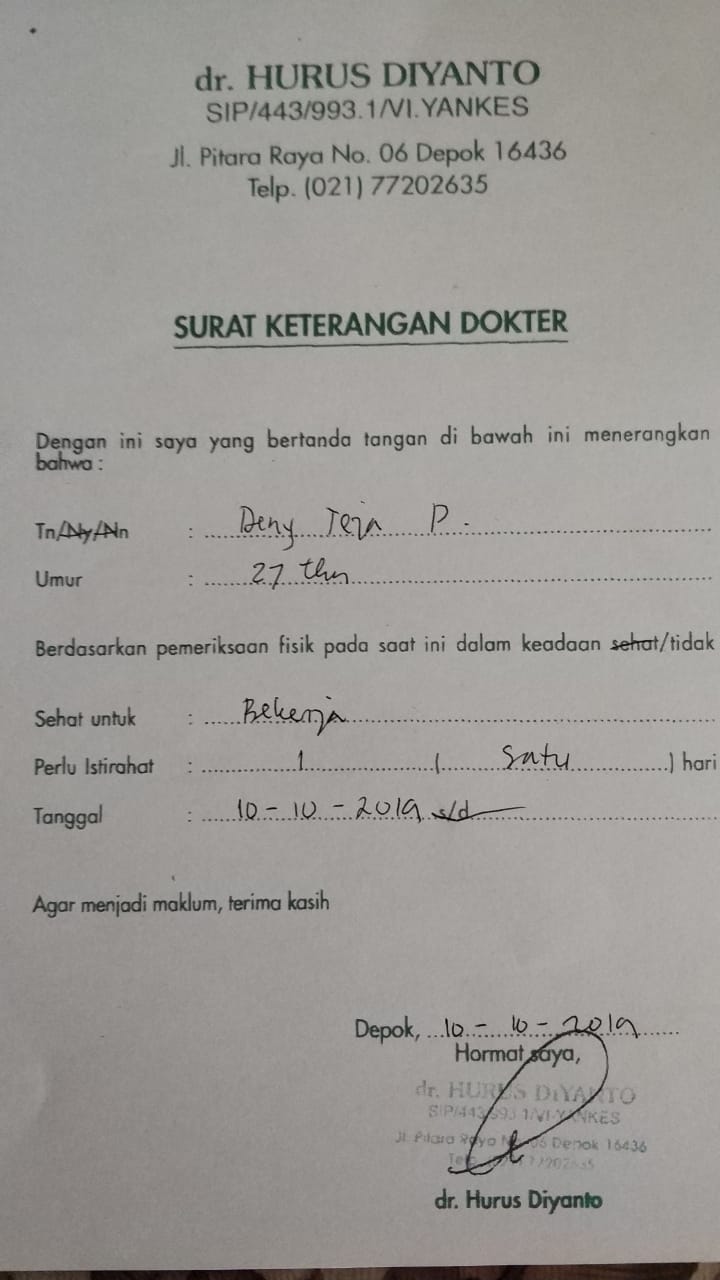 dr. HURUS DIYANTO
SIP/443/993.1/VI.YANKES
Jl. Pitara Raya No. 06 Depok 16436
Telp. (021) 77202635
SURAT KETERANGAN DOKTER
Dengan ini saya yang bertanda tangan di bawah ini menerangkan
bahwa :
Tn/Ny/Nn : Deny Teja P.
Umur : 27 thn
Berdasarkan pemeriksaan fisik pada saat ini dalam keadaan sehat/tidak
Sehat untuk : Bekerja
Perlu Istirahat : 1 ( Satu ) hari
Tanggal : 10-10-2019 s/d
Agar menjadi maklum, terima kasih
Depok, 10-10-2019
Hormat saya,
dr. HURUS DIYANTO
SIP/443/993.1/VI-YANKES
Jl. Pitara Raya No. 06 Depok 16436
dr. Hurus Diyanto